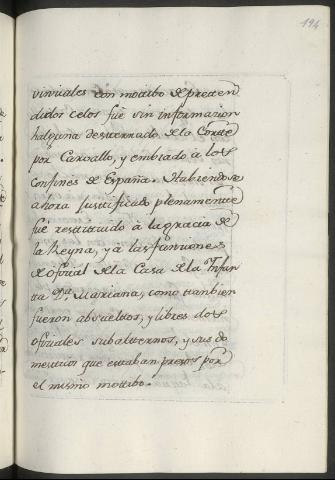 194
viniales con motibo de preten
didos celos fué sin informazion
halguna desterrado de la Corte
por Carvallo, y embiado à los
Confines de España. Habiendose
ahora justificato plenamente
fué restituido à la gracia de
la Reyna, y à las funziones
de ofizial de la Casa de la Infan
ta D.ª Mariana, como tanbien
fueron absueltos, y libres dos
ofiziales subalternos, y sus do
mesticos que estaban presos por
el mismo motibo.